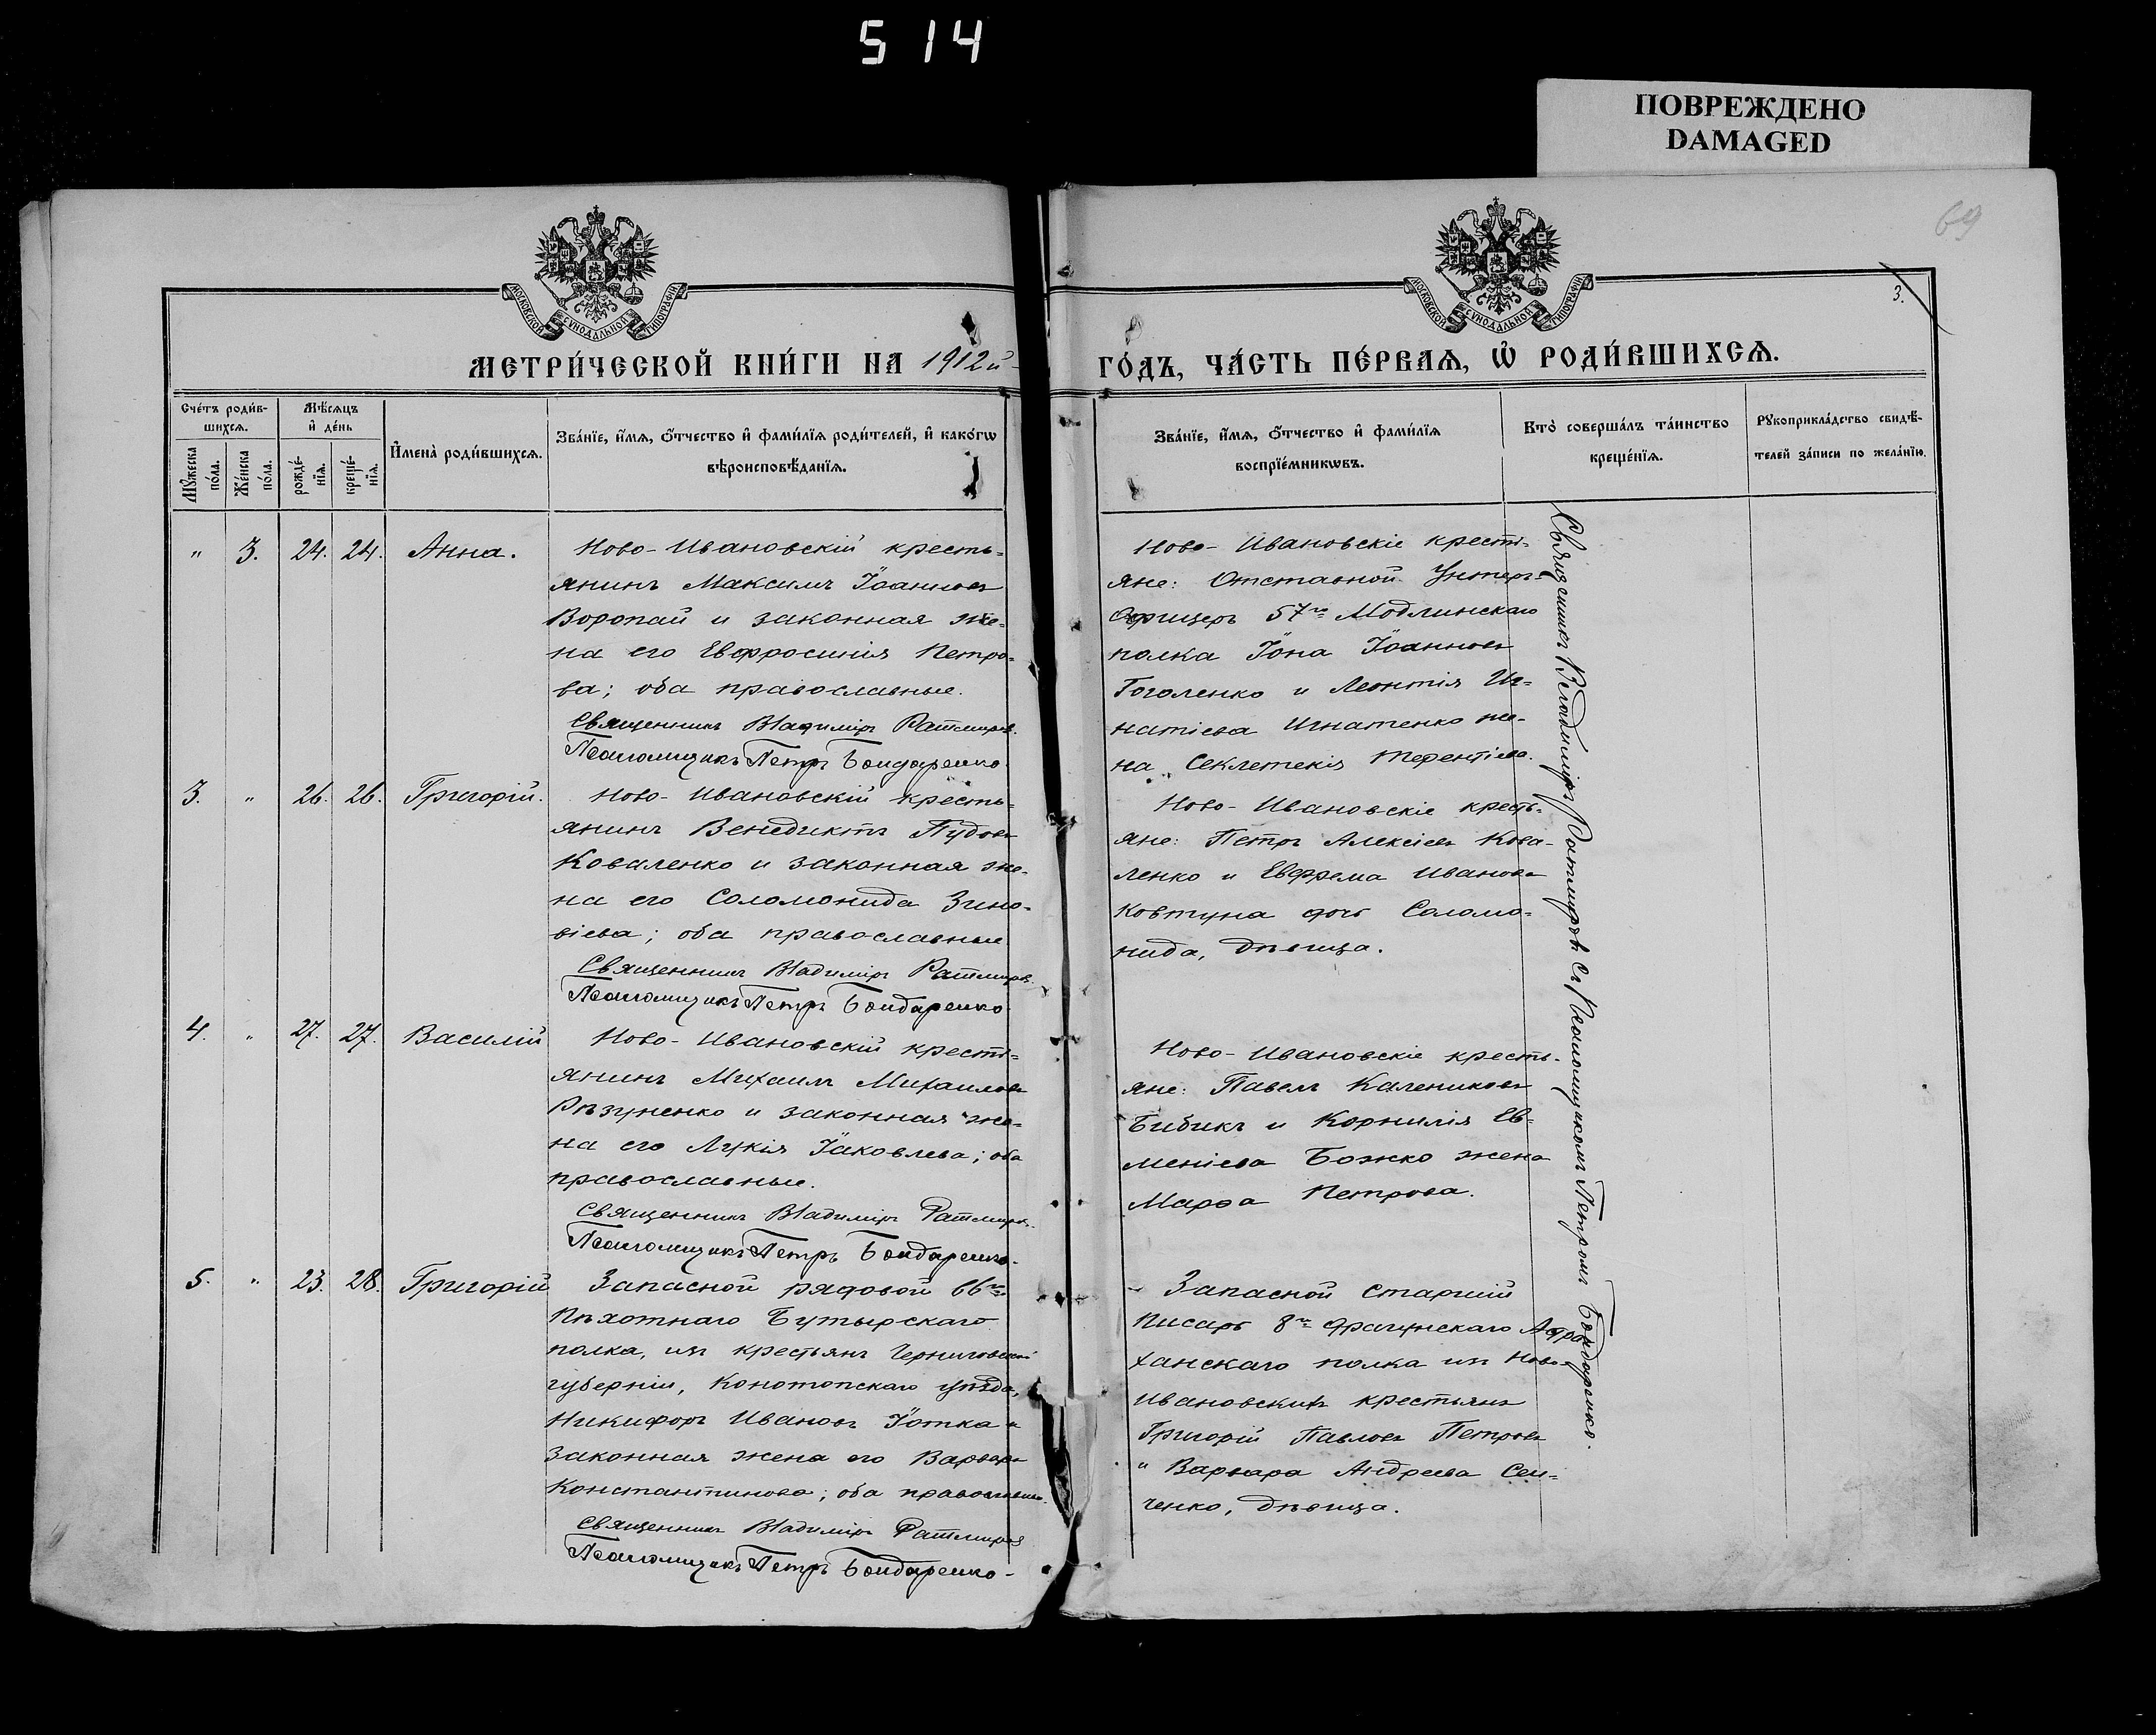 514
ПОВРЕЖДЕНО
DAMAGED
69
3.
МОСКОВСКОЙ СѴНОДАЛЬНОЙ ТИПОГРАФІИ
МОСКОВСКОЙ СѴНОДАЛЬНОЙ ТИПОГРАФІИ
МЕТРИ́ЧЕСКОЙ КНИ́ГИ НА 1912й
ГО́ДЪ, ЧА́СТЬ ПЕ́РВАѦ, Ѽ РОДИ́ВШИХСѦ.
Сче́тъ роди́в-
шихсѧ.
Мꙋ́жеска по́ла.
Же́нска по́ла.
Мѣ́сѧцъ
и҆ де́нь
рожде́-
нїѧ.
креще́-
нїѧ.
И҆мена̀ роди́вшихсѧ.
Зва́нїе, и҆́мѧ, ѻ҆́тчество и҆ фами́лїѧ роди́телей, и҆ како́гѡ
вѣроисповѣ́данїѧ.
Зва́нїе, и҆́мѧ, ѻ҆́тчество и҆ фами́лїѧ
воспрїе́мникѡвъ.
Кто̀ соверша́лъ та́инство
креще́нїѧ.
Рꙋкоприкла́дство свидѣ́-
телей за́писи по жела́нїю.
" 3. 24. 24. Анна.
Ново-Ивановскій кресть-
янинъ Максимъ Іоанновъ
Воропай и законная же-
на его Евфросинія Петро-
ва; оба православные.
Священникъ Владиміръ Ратмиров.
Псаломщикъ Петръ Бондаренко
Ново-Ивановскіе кресть-
яне: Отставной Унтеръ-
Офицеръ 57го Модлинскаго
полка Іона Іоанновъ
Гоголенко и Леонтія Иг-
натіева Игнатенко же-
на Секлетекія Терентіева.
3. " 26. 26. Григорій.
Ново-Ивановскій кресть-
янинъ Венедиктъ Пудовъ
Коваленко и законная же-
на его Соломонида Зино-
віева; оба православные
Священникъ Владиміръ Ратмиров.
Псаломщикъ Петръ Бондаренко
Ново-Ивановскіе кресть-
яне: Петръ Алексіевъ Кова-
ленко и Евфрема Иванова
Ковтуна дочь Соломо-
нида, дѣвица.
4. " 27. 27. Василій
Ново-Ивановскій кресть-
янинъ Михаилъ Михаиловъ
Рѣзуненко и законная же-
на его Лукія Іаковлева; оба
православные.
Священникъ Владиміръ Ратмиров.
Псаломщикъ Петръ Бондаренко.
Ново-Ивановскіе кресть-
яне: Павелъ Калениковъ
Бибикъ и Корнилія Ев-
меніева Божко жена
Марѳа Петрова.
5. " 23. 28. Григорій
Запасной рядовой 66го
Пѣхотнаго Бутырскаго
полка, изъ крестьянъ Черниговской
губерніи, Конотопскаго уѣзда,
Никифоръ Ивановъ Іотка и
законная жена его Варвара
Константинова; оба православные.
Священникъ Владиміръ Ратмиров
Псаломщикъ Петръ Бондаренко
Запасной старшій
Писарь 8го драгунскаго Астра
ханскаго полка изъ Ново-
Ивановскихъ крестьянъ
Григорій Павловъ Петровъ
и Варвара Андреева Сен-
ченко, дѣвица.
Священникъ Владиміръ Ратмировъ съ Псаломщикомъ Петромъ Бондаренко.